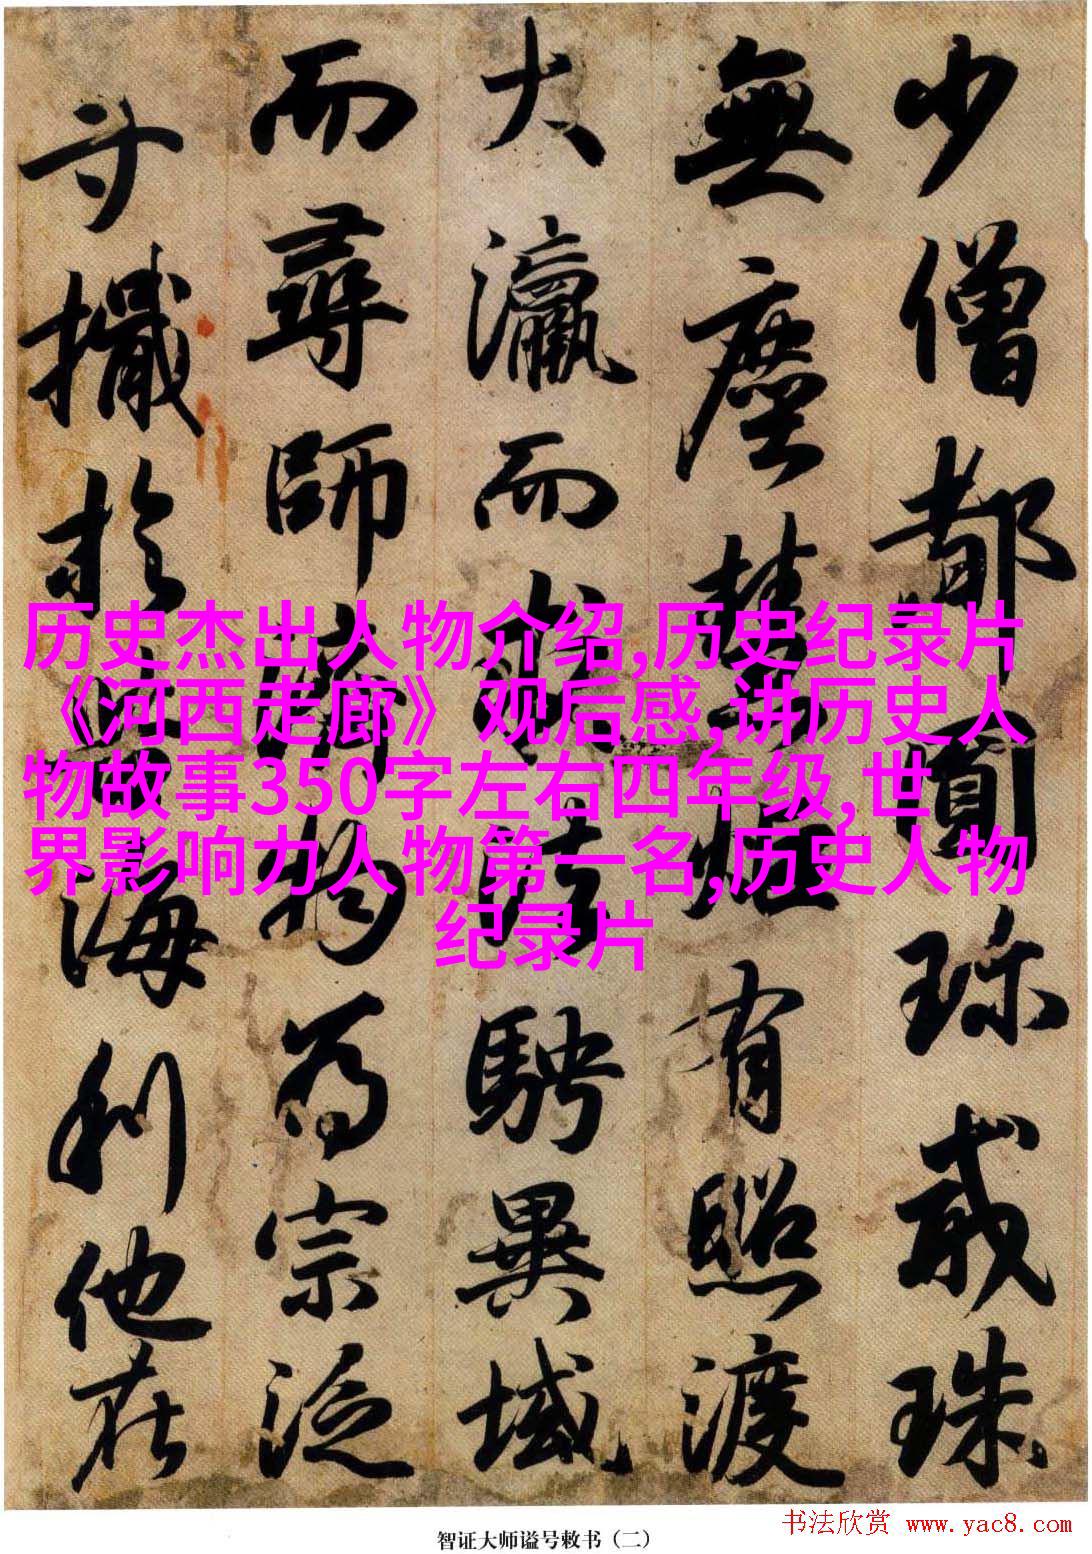 少僧都圓珎戒珠
無塵慧炬有照渡
大瀛而騁異域
而尋師濟物為宗泛
舟檝於海利他在
历史杰出人物介绍,历史纪录片
《河西走廊》观后感,讲历史人
物故事350字左右四年级,世
界影响力人物第一名,历史人物
纪录片
智证大师谥号敕书（二）
书法欣赏 www.yac8.com